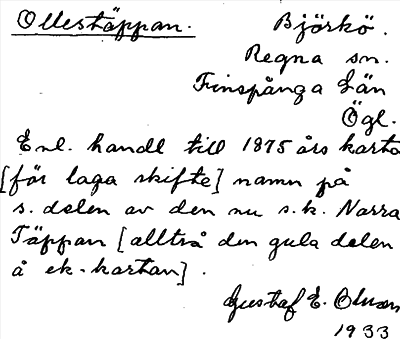 Ollestäppan. Björkö.
Regna sn.
Finspånga Län
Ögl.
Enl. handl till 1875 års karta
[för laga skifte] namn på
s. delen av den nu s.k. Norra
Täppan [alltså den gula delen
å ek-kartan].
Gustaf E. Olsson
1933